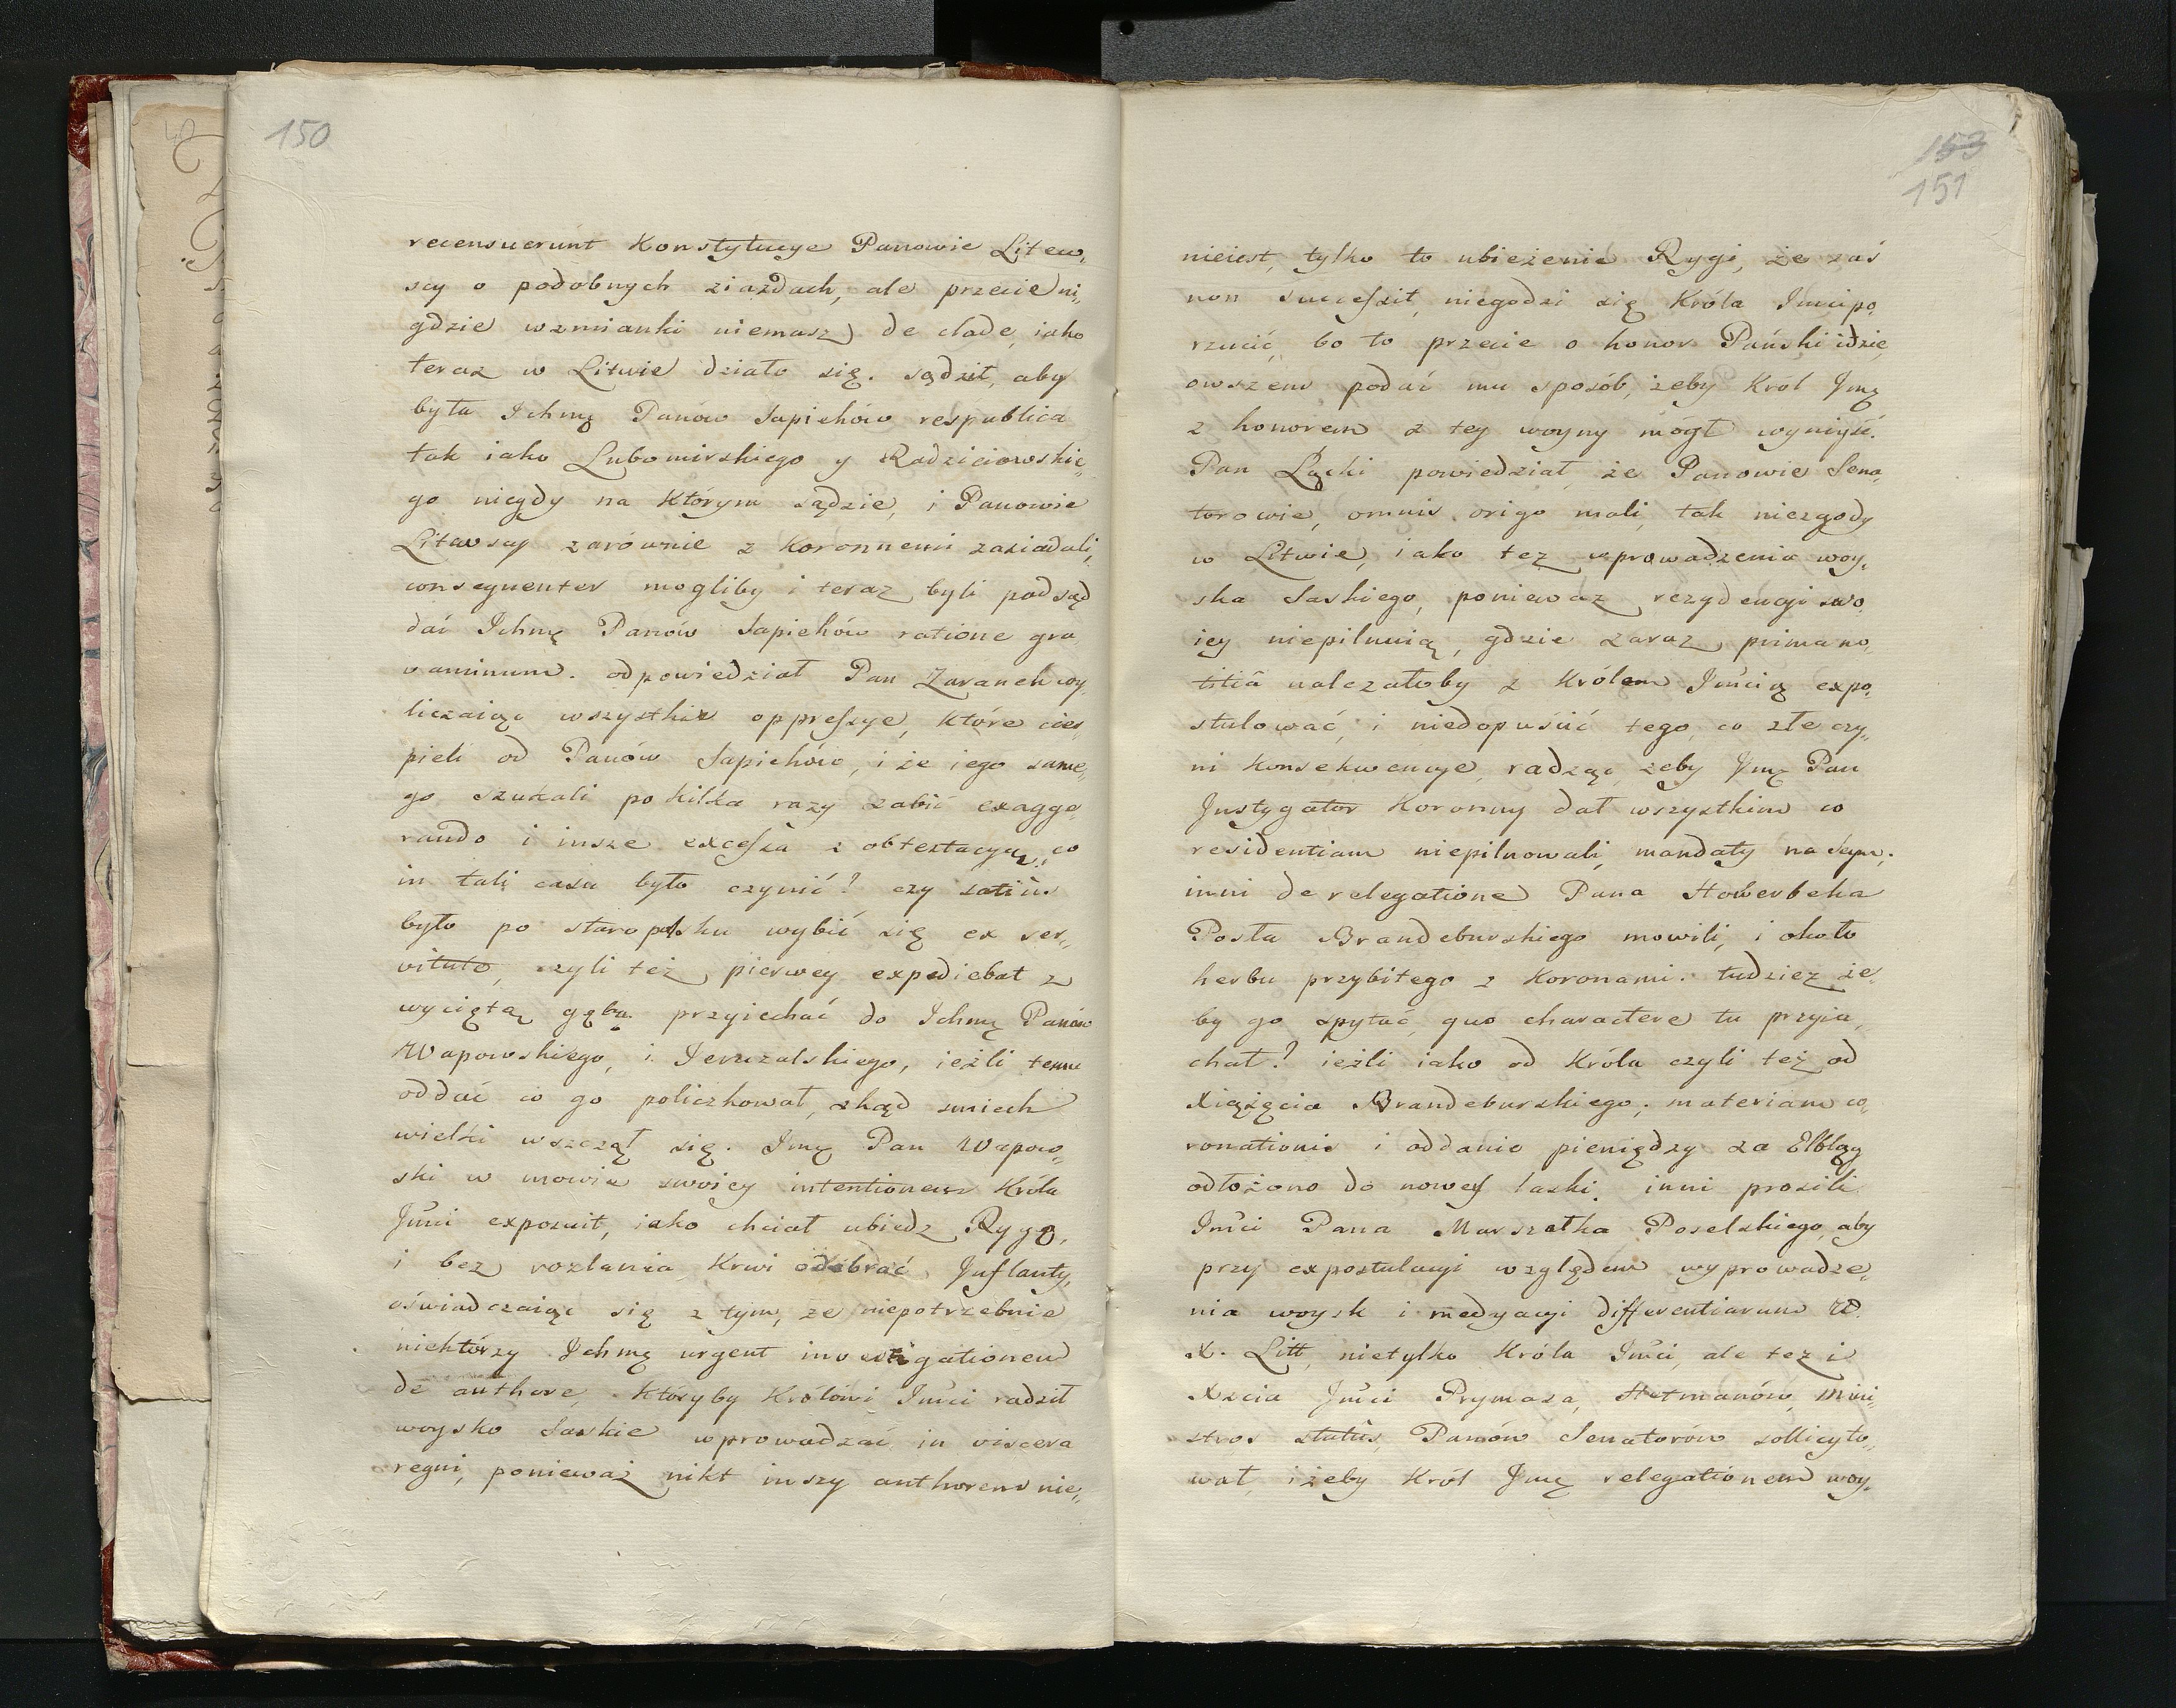 150
recensuerunt Konstytucye Panowie Litew,
scy o podobnych ziazdach, ale przecie ni,
gdzie wzmianki niemasz de clade, iako
teraz w Litwie działo się. sądził, aby
była Ichmę Panów Sapiehów respublica
tak iako Lubomirskiego y Radzieiowskie,
go niegdy na którym sądzie, i Panowie
Litewscy zarównie z Koronnemi zasiadali,
consequenter mogliby i teraz byli podsąd
dać Ichmę Panów Sapiehów ratione gra,
vaminum. odpowiedział Pan Zaranek wy,
liczaiąc wszystkie oppressye, które cier,
pieli od Panów Sapiehów, i że iego same,
go szukali po kilka razy zabić exagge,
rando i insze excessa z obtestacyą, co
in tali casu było czynić? czy satiùs
było po staropolsku wybić się ex ser,
vitute, czyli też pierwey expediebat z
wyciętą gębą przyiechać do Ichmę Panów
Wapowskiego, i Jeruzalskiego, ieżli temu
oddać co go policzkował, skąd smiech
wielki wszczął się. Jmę Pan Wapow,
ski w mowie swoiey intentionem Króla
Jmci exposuit, iako chciał ubiedz Rygę,
i bez rozlania krwi odebrać Inflanty,
oświadczaiąc się z tym, że niepotrzebnie
niektórzy Ichmę urgent investigationem
de authore, któryby Królowi Jmci radził
woysko Saskie wprowadzać in viscera
regni, ponieważ nikt inszy authorem nie,
153
151
nieiest, tylko to ubieżenie Rygi, że zaś
non successit, niegodzi się Króla Jmci po,
rzucić, bo to przecie o honor Pański idzie,
owszem podać mu sposób, żeby Król Jmę
z honorem z tey woyny mógł wyniyść.
Pan Łącki powiedział, że Panowie Sena,
torowie, omnis origo mali, tak niezgody
w Litwie, iako tez wprowadzenia woy,
ska Saskiego, poniewaz rezydencyi swo,
iey niepilnuią, gdzie zaraz prima no,
titiâ należałoby z Królem Jmcią expo,
stulować, i niedopuścić tego, co złe czy,
ni konsekwencye, radząc, żeby Jmę Pan
Instygator Koronny dał wszystkim co
residentiam niepilnowali, mandaty na Seym.
inni de relegatione Pana Howerbeka
Posła Brandeburskiego mowili, i około
herbu przybitego z Koronami. tudziez że,
by go spytać, quo charactere tu przyie,
chał? ieżli iako od Króla czyli też od
Xiążęcia Brandeburskiego. materiam co,
ronationis i oddanie pieniędzy za Elbląg
odłożono do nowey laski. inni prosili
Jmci Pana Marszałka Poselskiego, aby
przy expostulacyi względem wyprowadze,
nia woysk i medyacyi differentiarum W.
X. Litt. nietylko Króla Jmci, ale tez i
Xzcia Jmci Prymasa, Hetmanów, Mini,
stros statûs, Panów Senatorów sollicyto,
wał, iżeby Król Jmę relegationem woy,